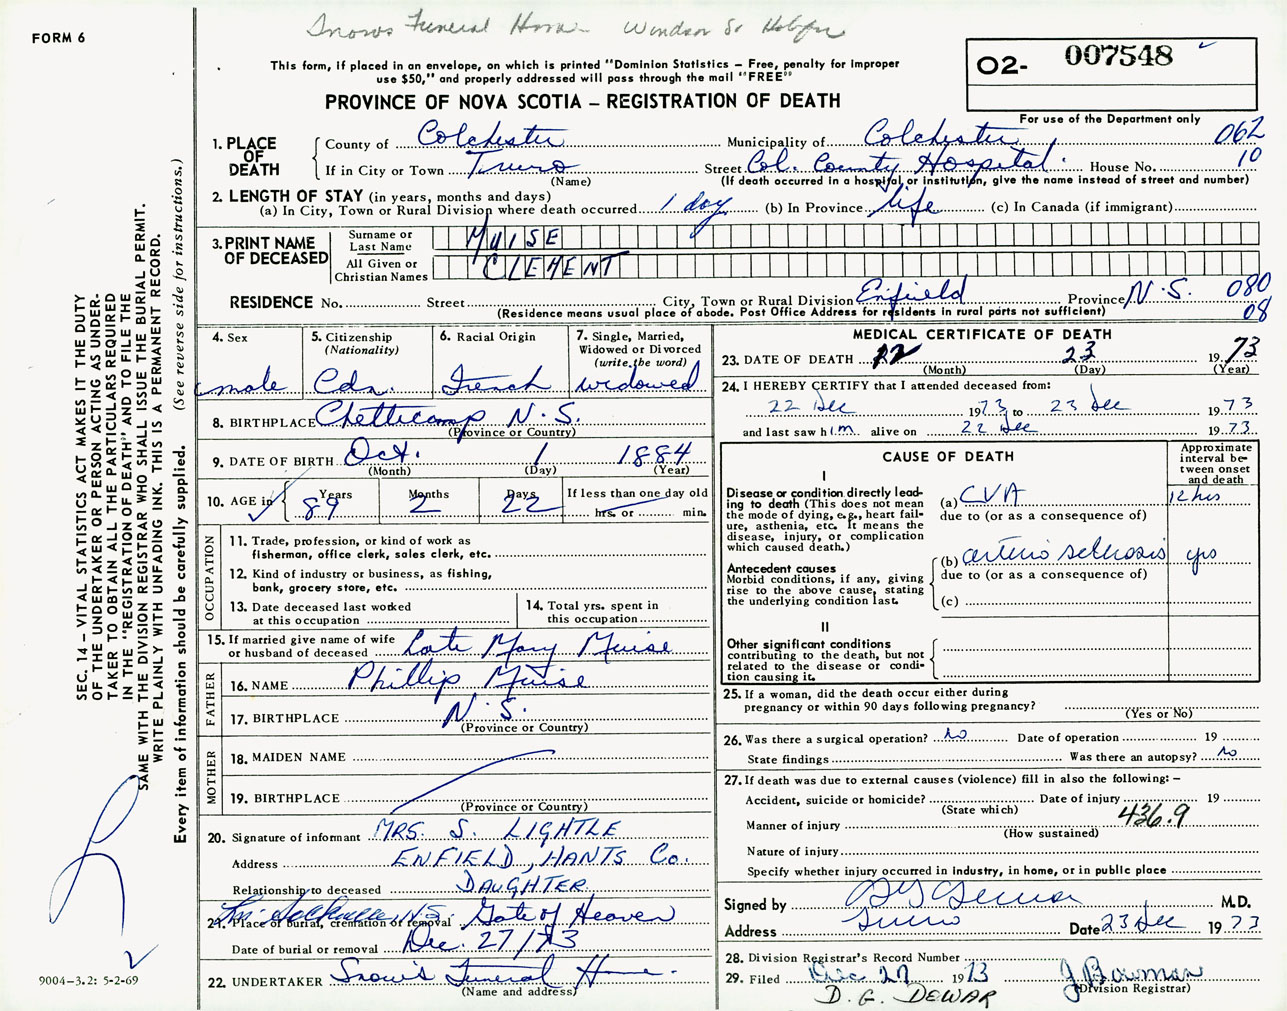 Snows Funeral Home - Windsor St Halifax
FORM 6
This form, if placed in an envelope, on which is printed "Dominion Statistics – Free, penalty for improper
use $50," and properly addressed will pass through the mail "FREE"
PROVINCE OF NOVA SCOTIA – REGISTRATION OF DEATH
02- 007548
For use of the Department only
1. PLACE OF DEATH
County of Colchester Municipality of Colchester 062
If in City or Town Truro Street Col. County Hospital. House No. 10
(Name) (If death occurred in a hospital or institution, give the name instead of street and number)
2. LENGTH OF STAY (in years, months and days)
(a) In City, Town or Rural Division where death occurred 1 day (b) In Province life (c) In Canada (if immigrant)
3. PRINT NAME OF DECEASED
Surname or Last Name MUISE
All Given or Christian Names CLEMENT
RESIDENCE No. Street City, Town or Rural Division Enfield Province N.S. 080
(Residence means usual place of abode. Post Office Address for residents in rural parts not sufficient) 08
4. Sex male
5. Citizenship (Nationality) Cdn.
6. Racial Origin French
7. Single, Married, Widowed or Divorced (write the word) widowed
8. BIRTHPLACE Chetticamp N.S.
(Province or Country)
9. DATE OF BIRTH Oct. 1 1884
(Month) (Day) (Year)
10. AGE in Years 89 Months 2 Days 22 If less than one day old
hrs. or min.
OCCUPATION
11. Trade, profession, or kind of work as
fisherman, office clerk, sales clerk, etc.
12. Kind of industry or business, as fishing,
bank, grocery store, etc.
13. Date deceased last worked
at this occupation
14. Total yrs. spent in
this occupation
15. If married give name of wife
or husband of deceased Late Mary Muise
FATHER
16. NAME Phillip Muise
17. BIRTHPLACE N.S.
(Province or Country)
MOTHER
18. MAIDEN NAME
19. BIRTHPLACE
(Province or Country)
20. Signature of informant MRS. S. LIGHTLE
Address ENFIELD, HANTS Co.
Relationship to deceased DAUGHTER
21. Place of burial, cremation or removal Gate of Heaven
Date of burial or removal Dec. 27/73
22. UNDERTAKER Snow's Funeral Home.
(Name and address)
MEDICAL CERTIFICATE OF DEATH
23. DATE OF DEATH 12 23 1973
(Month) (Day) (Year)
24. I HEREBY CERTIFY that I attended deceased from:
22 Dec 1973 to 23 Dec 1973
and last saw him alive on 22 Dec 1973
CAUSE OF DEATH
Approximate
interval be-
tween onset
and death
I
Disease or condition directly lead-
ing to death (This does not mean
the mode of dying, e.g., heart fail-
ure, asthenia, etc. It means the
disease, injury, or complication
which caused death.)
(a) CVA 12 hrs
due to (or as a consequence of)
Antecedent causes
Morbid conditions, if any, giving
rise to the above cause, stating
the underlying condition last.
(b) arterio sclerosis yrs
due to (or as a consequence of)
(c)
II
Other significant conditions
contributing to the death, but not
related to the disease or condi-
tion causing it.
25. If a woman, did the death occur either during
pregnancy or within 90 days following pregnancy?
(Yes or No)
26. Was there a surgical operation? No Date of operation 19
State findings Was there an autopsy? No
27. If death was due to external causes (violence) fill in also the following: –
Accident, suicide or homicide? Date of injury 19
(State which) 436.9
Manner of injury
(How sustained)
Nature of injury
Specify whether injury occurred in industry, in home, or in public place
Signed by M.D.
Address Truro Date 23 Dec 1973
28. Division Registrar's Record Number
29. Filed Dec 27 1973 J. Bowman
(Division Registrar)
D. G. DEWAR
SEC. 14 – VITAL STATISTICS ACT MAKES IT THE DUTY
OF THE UNDERTAKER OR PERSON ACTING AS UNDER-
TAKER TO OBTAIN ALL THE PARTICULARS REQUIRED
IN THE "REGISTRATION OF DEATH" AND TO FILE THE
SAME WITH THE DIVISION REGISTRAR WHO SHALL ISSUE THE BURIAL PERMIT.
WRITE PLAINLY WITH UNFADING INK. THIS IS A PERMANENT RECORD.
Every item of information should be carefully supplied. (See reverse side for instructions.)
9004-3.2: 5-2-69